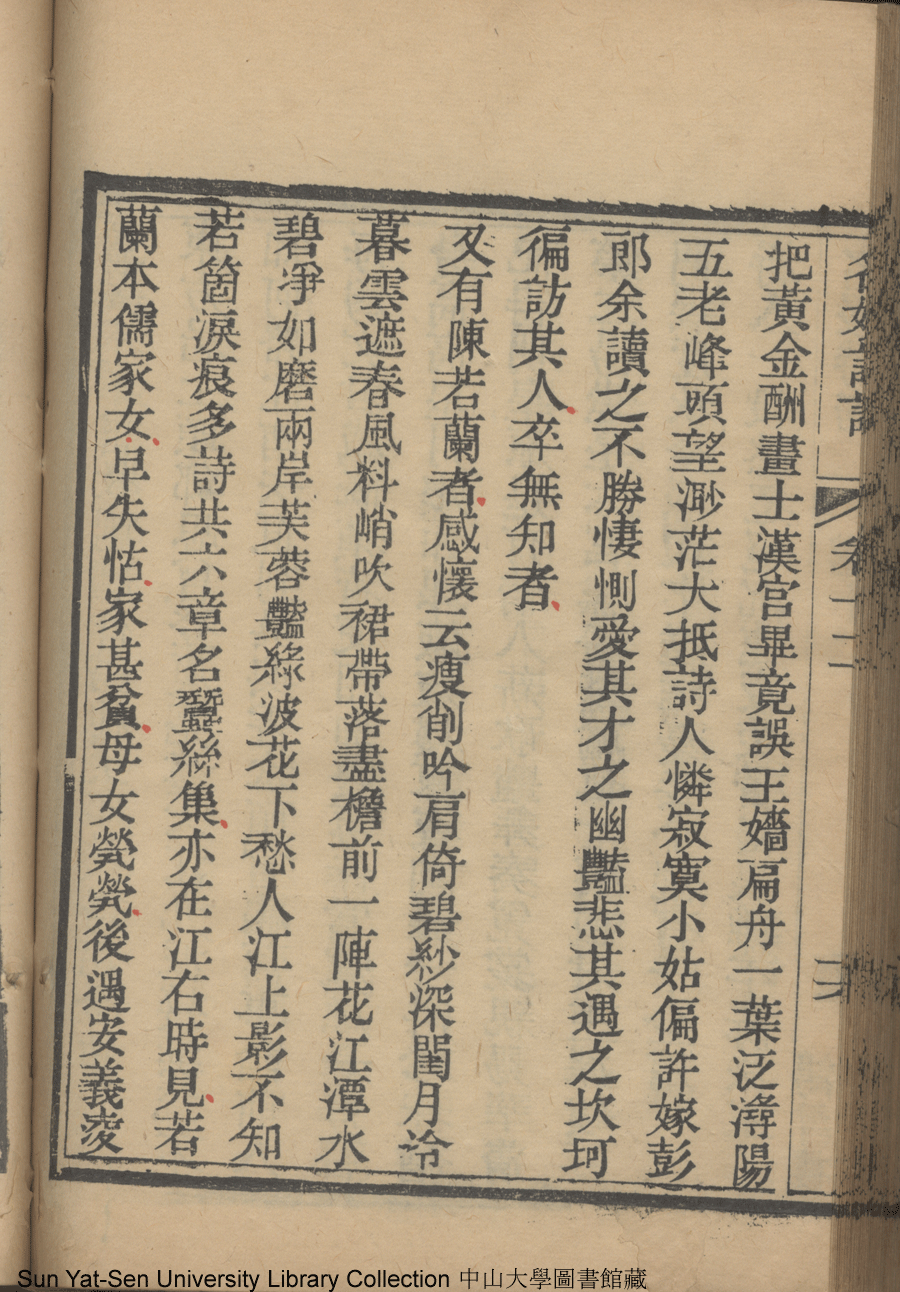 把黃金酬畫士漢宮畢竟誤王嬙扁舟一葉泛潯陽
五老峰頭望渺茫大抵詩人憐寂寞小姑偏許嫁彭
郎余讀之不勝悽惻愛其才之幽豔悲其遇之坎坷
徧訪其人卒無知者
又有陳若蘭者感懷云瘦削吟肩倚碧紗深閨月冷
暮雲遮春風料峭吹裙帶落盡檐前一陣花江潭水
碧凈如磨兩岸芙蓉豔綠波花下愁人江上影不知
若箇淚痕多詩共六章名蠶絲集亦在江右時見若
蘭本儒家女早失怙家甚貧母女煢煢後遇安義凌
Sun Yat-Sen University Library Collection 中山大學圖書館藏